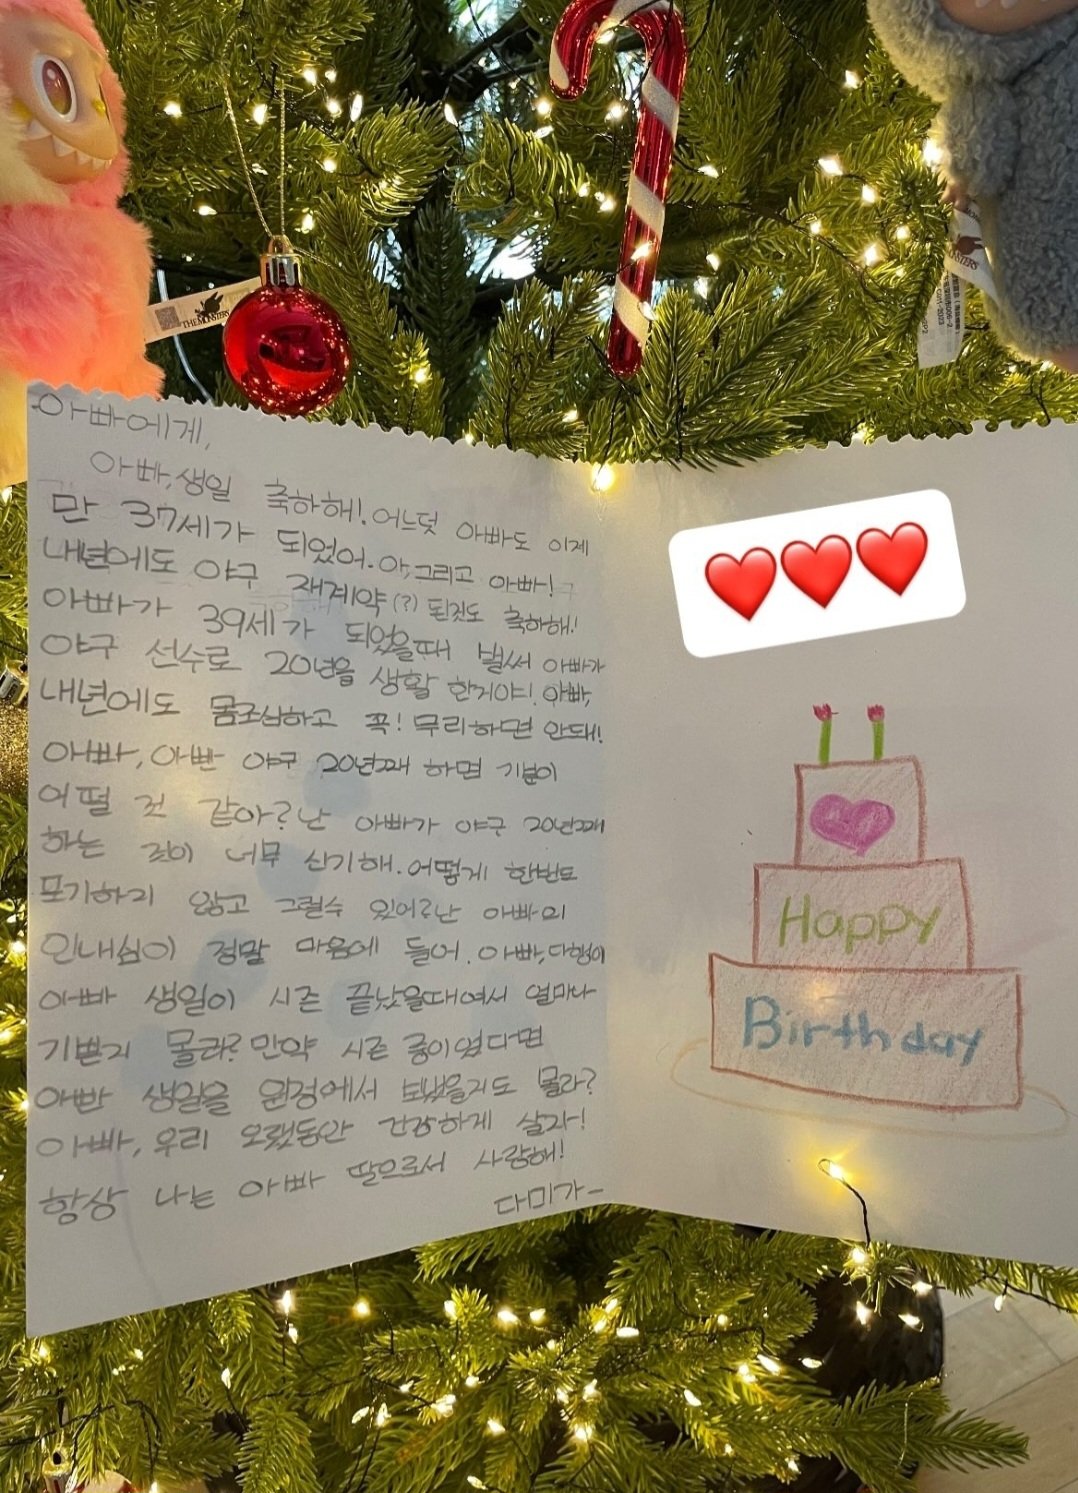 THE MONSTERS
아빠에게,
아빠, 생일 축하해! 어느덧 아빠도 이제
만 37세가 되었어. 아, 그리고 아빠!
내년에도 야구 재계약(?) 된것도 축하해!
아빠가 39세가 되었을때 벌써 아빠가
야구 선수로 20년을 생활 한거야! 아빠,
내년에도 몸조심하고 꼭! 무리하면 안돼!
아빠, 아빤 야구 20년째 하면 기분이
어떨 것 같아? 난 아빠가 야구 20년째
하는 것이 너무 신기해. 어떻게 한번도
포기하지 않고 그럴수 있어? 난 아빠의
인내심이 정말 마음에 들어. 아빠, 다행이
아빠 생일이 시즌 끝났을때여서 얼마나
기쁜지 몰라? 만약 시즌 중이었다면
아빤 생일을 원정에서 보냈을지도 몰라?
아빠, 우리 오랫동안 건강하게 살자!
항상 나는 아빠 딸으로서 사랑해!
다미가-
Happy
Birthday